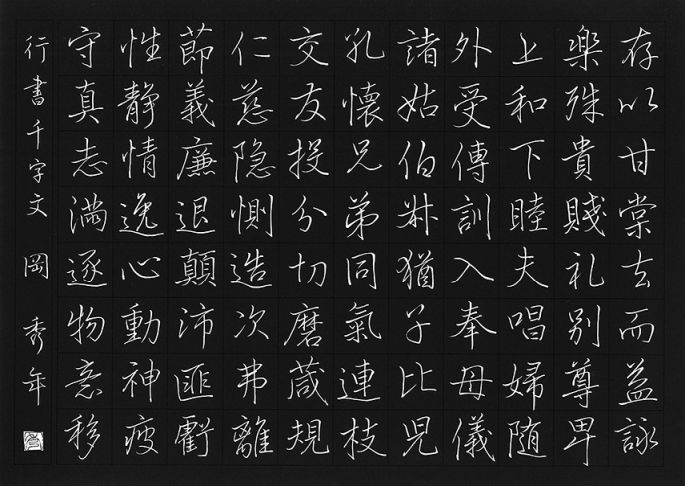 存以甘棠去而益詠
楽殊貴賤礼別尊卑
上和下睦夫唱婦随
外受傅訓入奉母儀
諸姑伯叔猶子比児
孔懐兄弟同氣連枝
交友投分切磨蔵規
仁慈隠惻造次弗離
節義廉退顛沛匪虧
性静情逸心動神疲
守真志満逐物意移
行書千字文 岡 秀年